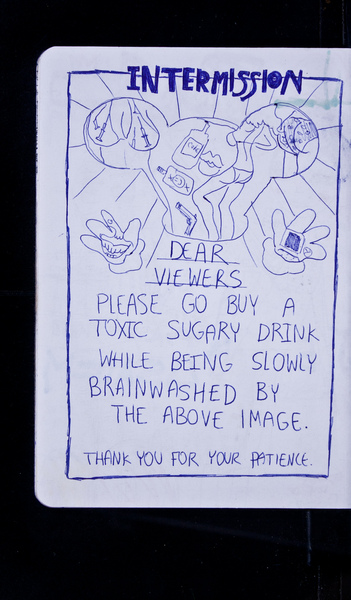 INTERMISSION
DEAR
VIEWERS
PLEASE GO BUY A
TOXIC SUGARY DRINK
WHILE BEING SLOWLY
BRAINWASHED BY
THE ABOVE IMAGE.
THANK YOU FOR YOUR PATIENCE.